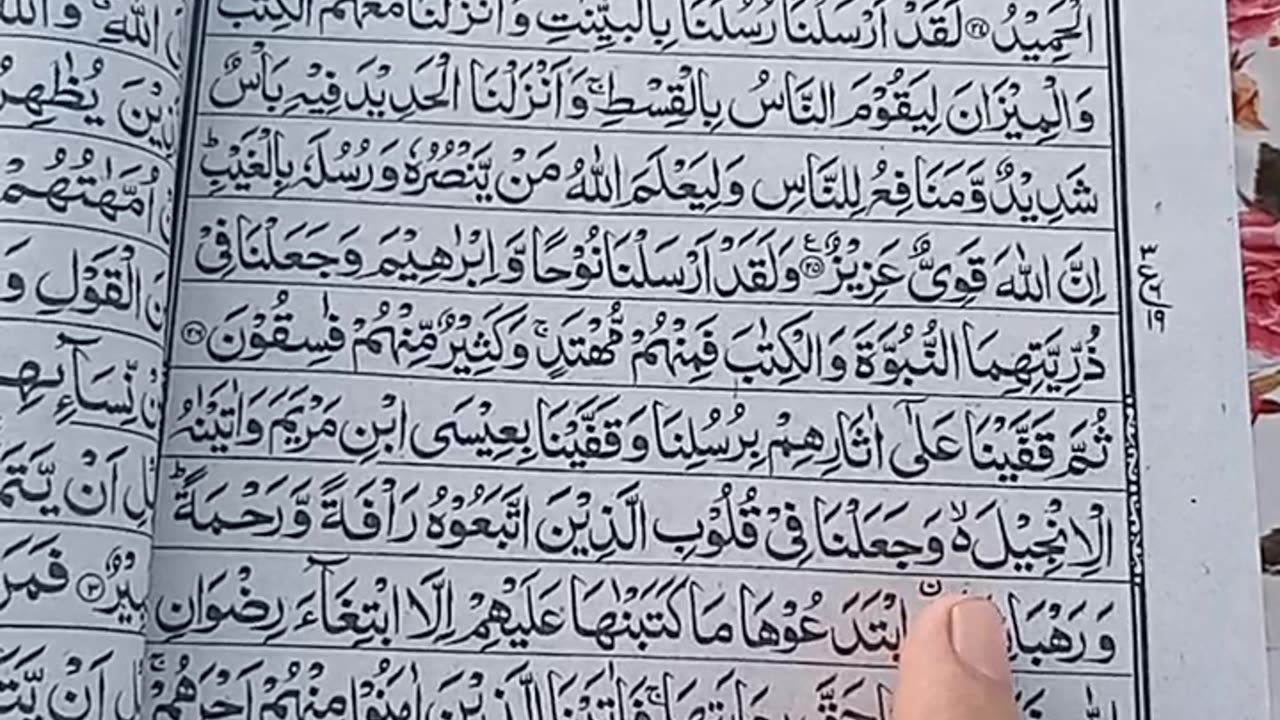 الْحَمِيْدُ ﴿۲۴﴾ لَقَدْ اَرْسَلْنَا رُسُلَنَا بِالْبَيِّنٰتِ وَاَنْزَلْنَا مَعَهُمُ الْكِتٰبَ
وَالْمِيْزَانَ لِيَقُوْمَ النَّاسُ بِالْقِسْطِ ۚ وَاَنْزَلْنَا الْحَدِيْدَ فِيْهِ بَاْسٌ
شَدِيْدٌ وَّمَنَافِعُ لِلنَّاسِ وَلِيَعْلَمَ اللّٰهُ مَنْ يَّنْصُرُهٗ وَرُسُلَهٗ بِالْغَيْبِ ؕ
اِنَّ اللّٰهَ قَوِيٌّ عَزِيْزٌ ﴿۲۵﴾ۧ وَلَقَدْ اَرْسَلْنَا نُوْحًا وَّاِبْرٰهِيْمَ وَجَعَلْنَا فِيْ
ذُرِّيَّتِهِمَا النُّبُوَّةَ وَالْكِتٰبَ فَمِنْهُمْ مُّهْتَدٍ ۚ وَكَثِيْرٌ مِّنْهُمْ فٰسِقُوْنَ ﴿۲۶﴾
ثُمَّ قَفَّيْنَا عَلٰٓى اٰثَارِهِمْ بِرُسُلِنَا وَقَفَّيْنَا بِعِيْسَى ابْنِ مَرْيَمَ وَاٰتَيْنٰهُ
الْاِنْجِيْلَ ۙ۬ وَجَعَلْنَا فِيْ قُلُوْبِ الَّذِيْنَ اتَّبَعُوْهُ رَاْفَةً وَّرَحْمَةً ؕ
ابْتَدَعُوْهَا مَا كَتَبْنٰهَا عَلَيْهِمْ اِلَّا ابْتِغَآءَ رِضْوَانِ
حَقَّ رِعَايَتِهَا ۚ فَاٰتَيْنَا الَّذِيْنَ اٰمَنُوْا مِنْهُمْ اَجْرَهُمْ ۚ
٣
ع
١٩
اللّٰهِ ؕ
اُمَّهٰتُهُمْ
الْقَوْلِ وَ
اَنْ
اَنْ